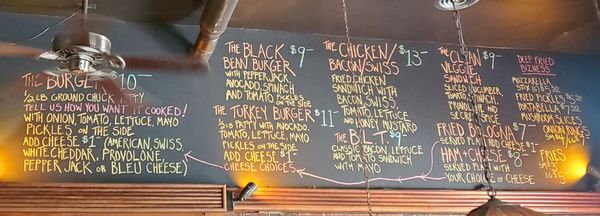 THE BURGER 10-
1/2 LB GROUND CHUCK PATTY
TELL US HOW YOU WANT IT COOKED!
WITH ONION, TOMATO, LETTUCE, MAYO
PICKLES ON THE SIDE
ADD CHEESE $1 (AMERICAN, SWISS,
WHITE CHEDDAR, PROVOLONE,
PEPPER JACK OR BLEU CHEESE)
THE BLACK $9-
BEAN BURGER
WITH PEPPERJACK,
AVOCADO, SPINACH
AND TOMATO
THE TURKEY BURGER $11-
1/2 LB PATTY WITH AVOCADO,
TOMATO, LETTUCE, MAYO
PICKLES ON THE SIDE
ADD CHEESE $1
CHEESE CHOICES
THE CHICKEN/ $13-
BACON/SWISS
FRIED CHICKEN
SANDWICH WITH
BACON, SWISS,
TOMATO, LETTUCE
HONEY MUSTARD
THE BLT $9
CLASSIC BACON, LETTUCE
AND TOMATO SANDWICH
WITH MAYO
THE CLEAN $9-
VEGGIE
SANDWICH
SLICED CUCUMBER
TOMATO
PROVOLONE
SECRET
FRIED BOLOGNA $7
SERVED PLAIN AND CHEESE
HAM + CHEESE $8
SERVED PLAIN WITH
YOUR CHOICE OF CHEESE
DEEP FRIED
BIZNESS
MOZZARELLA
FRIED PICKLES
HONEY
MUSHROOMS
ONION RINGS
FRIES
SM $3
LG $5